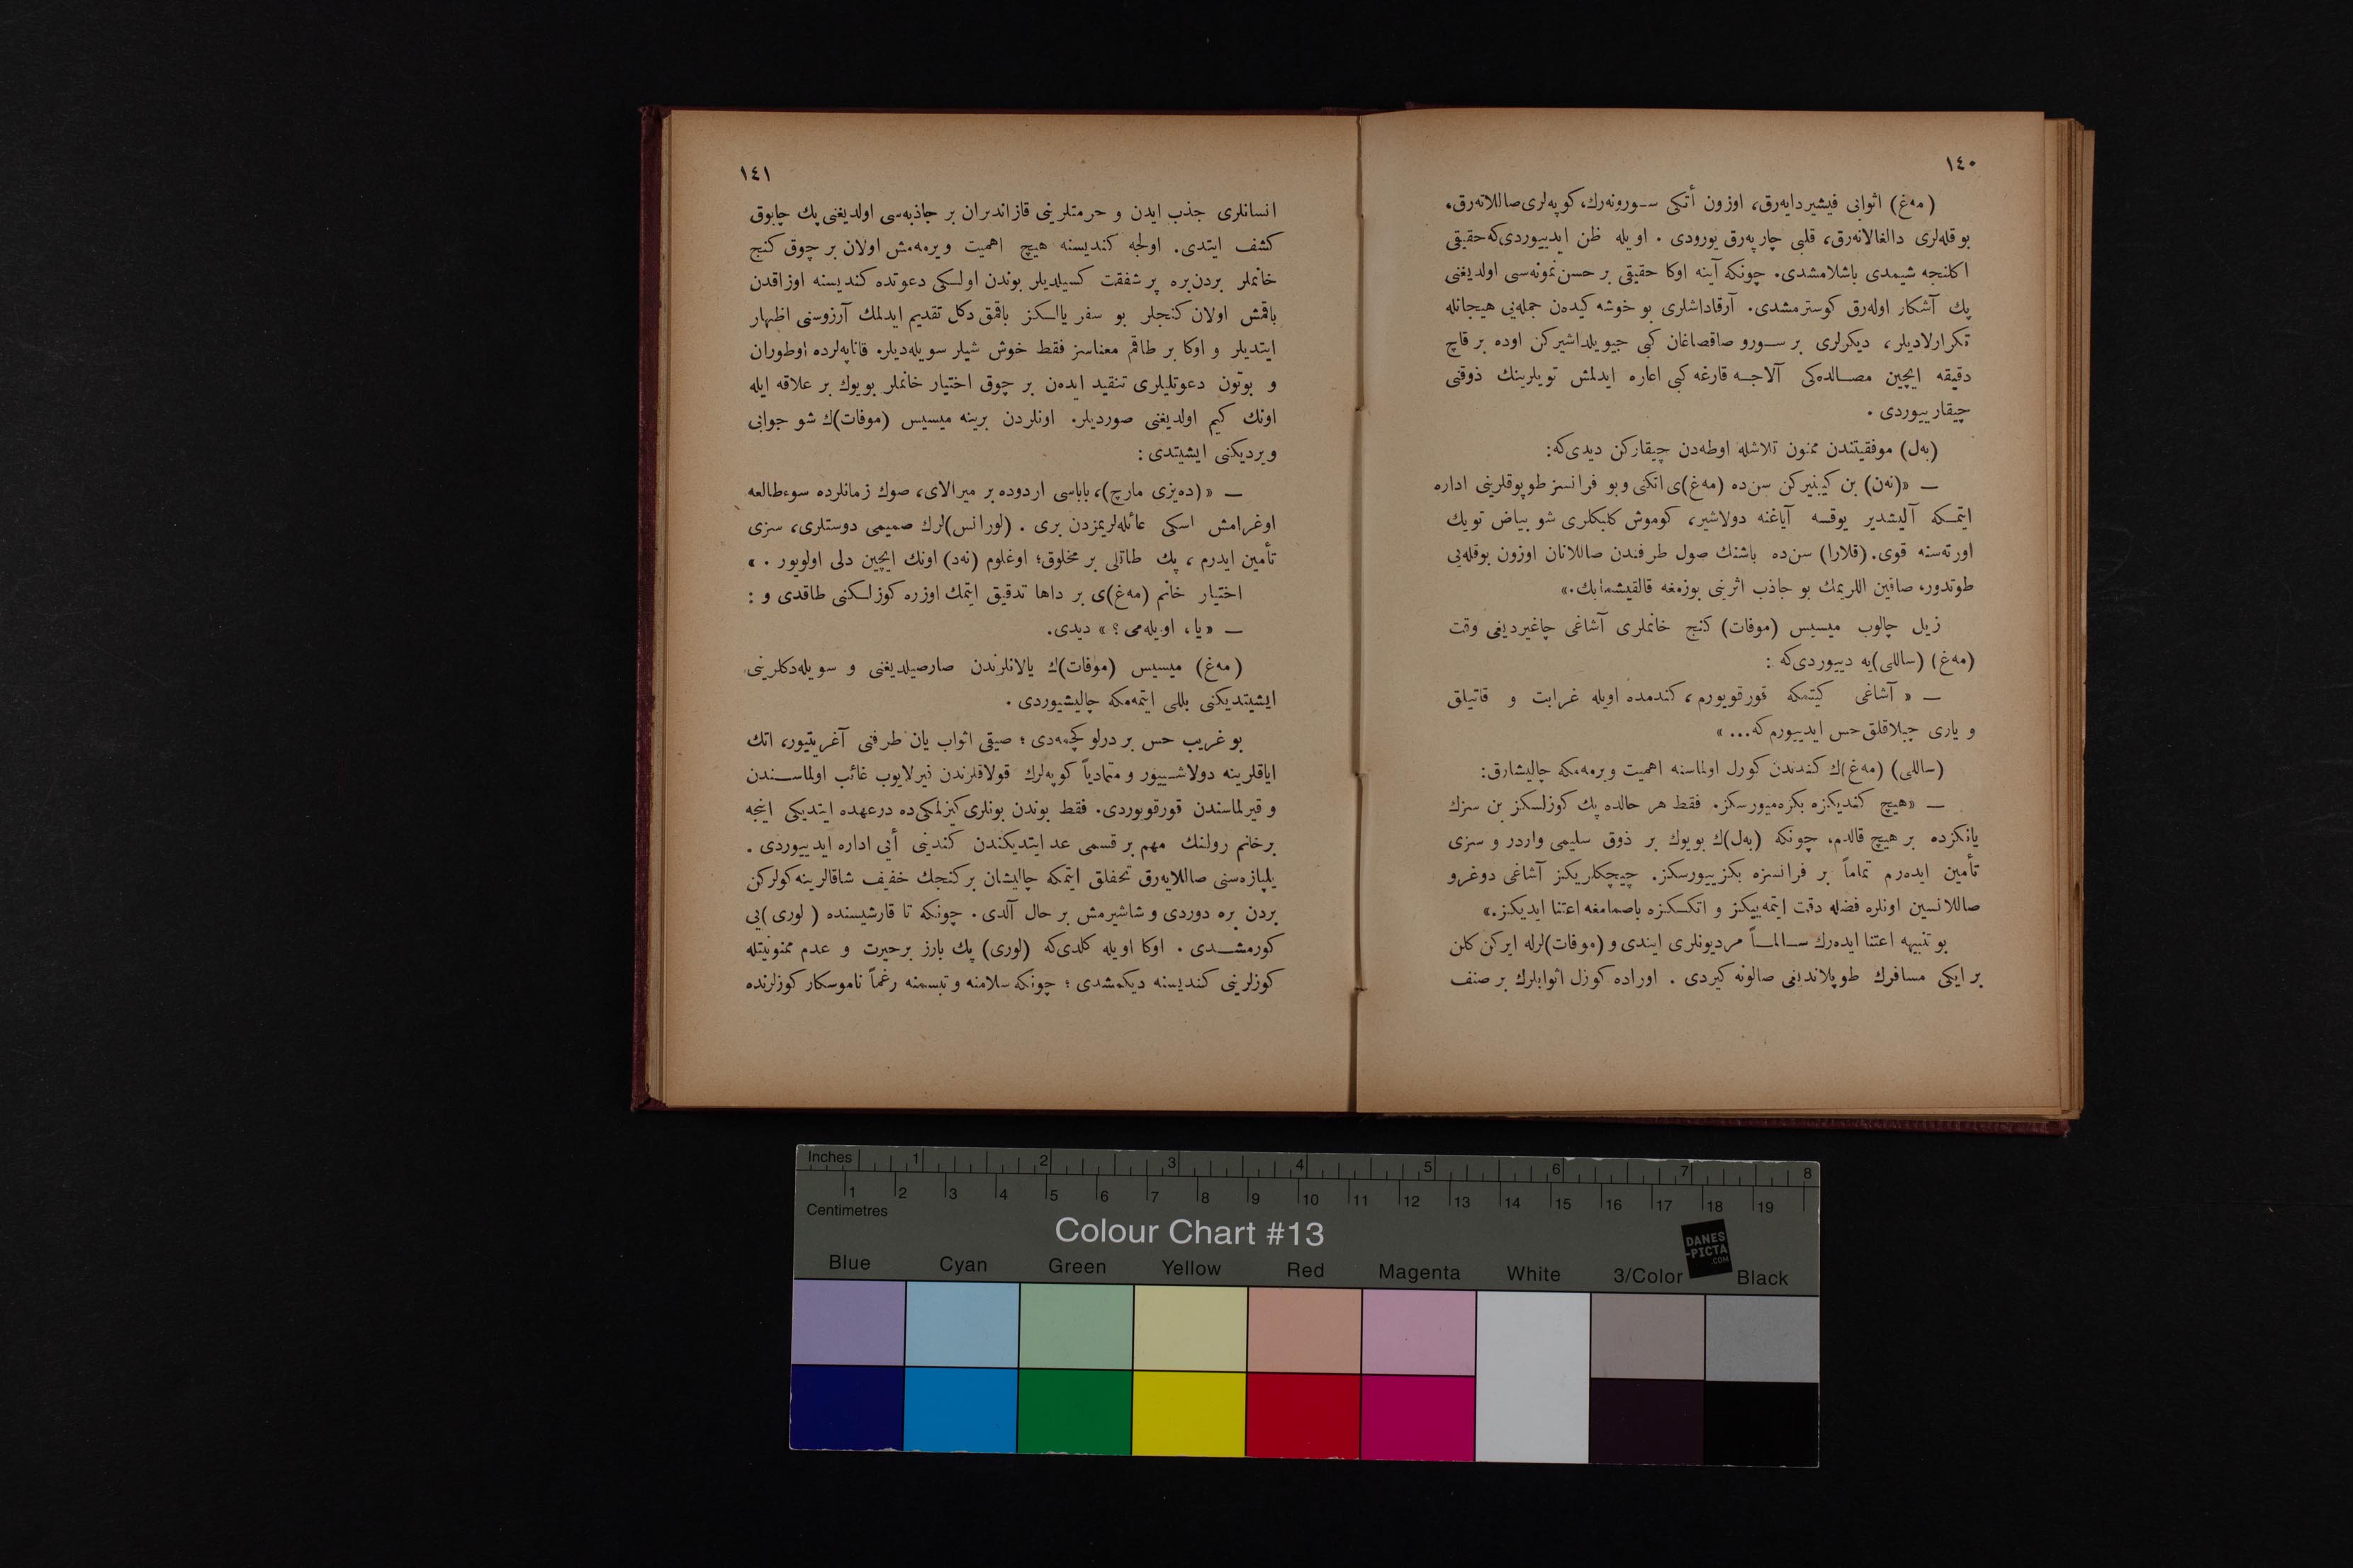 ١٤٠
(مه‌غ) اثوابی فیشیردایه‌رق، اوزون أتکی سورونه‌رك، کوپه‌لری صاللانه‌رق،
بوقله‌لری دالغالانه‌رق، قلبی چارپه‌رق یورودی. اویله ظن ایدییوردی‌که حقیقی
اکلنجه شیمدی باشلامشدی. چونکه آینه اوکا حقیقی بر حسن نمونه‌سی اولدیغنی
پك آشکار اوله‌رق کوسترمشدی. آرقاداشلری بو خوشه کیده‌ن جمله‌یی هیجانله
تکرارلادیلر، دیکرلری بر سورو صاقصاغان کبی جیویلداشیرکن اوده بر قاچ
دقیقه ایچین مصالده‌کی آلاجه قارغه کبی اعاره ایدلمش تویلرینك ذوقنی
چیقارییوردی.
(به‌ل) موفقیتندن ممنون تلاشله اوطه‌دن چیقارکن دیدی‌که:
— «(نه‌ن) بن کیینیرکن سن‌ده (مه‌غ)ی اتکنی وبو فرانسز طوپوقلرینی اداره
ایتمکه آلیشدیر یوقسه آیاغنه دولاشیر، کوموش کلبکلری شو بیاض تویك
اورته‌سنه قوی. (قلارا) سن‌ده باشنك صول طرفندن صاللانان اوزون بوقله‌یی
طوتدور، صاقین اللریمك بو جاذب اثرینی بوزمغه قالقیشمایك.»
زیل چالوب میسیس (موفات) کنج خانملری آشاغی چاغیردیغی وقت
(مه‌غ) (ساللی)یه دییوردی‌که:
— «آشاغی کیتمکه قورقویورم، کندمده اویله غرابت و قاتیلق
و یاری جبلاقلق حس ایدییورم‌که...»
(ساللی) (مه‌غ)ك کندندن کوزل اولماسنه اهمیت ویرمه‌مکه چالیشارق:
— «هیچ کندیکزه بکزه‌میورسکز. فقط هر حالده پك کوزلسکز بن سزك
یانکزده بر هیچ قالدم، چونکه (به‌ل)ك بویوك بر ذوق سلیمی واردر و سزی
تأمین ایده‌رم تماماً بر فرانسزه بکزییورسکز. چیچکلریکز آشاغی دوغرو
صاللانسین اونلره فضله دقت ایتمه‌ییکز و اتکسکزه باصمامغه اعتنا ایدیکز.»
بو تنبیهه اعتنا ایده‌رك سالماً مردیونلری ایندی و (موفات)لرله ایرکن کلن
بر ایکی مسافرك طوپلاندیغی صالونه کیردی. اوراده کوزل اثوابلرك بر صنف
١٤١
انسانلری جذب ایدن و حرمتلرینی قازاندیران بر جاذبه‌سی اولدیغنی پك چابوق
کشف ایتدی. اولجه کندیسنه هیچ اهمیت ویرمه‌مش اولان بر چوق کنج
خانملر بردن‌بره پر شفقت کسیلدیلر بوندن اولکی دعوتده کندیسنه اوزاقدن
باقمش اولان کنجلر بو سفر یالکز باقمق دکل تقدیم ایدلمك آرزوسنی اظهار
ایتدیلر و اوکا بر طاقم معناسز فقط خوش شیلر سویله‌دیلر. قاناپه‌لرده اوطوران
و بوتون دعوتلیلری تنقید ایده‌ن بر چوق اختیار خانملر بویوك بر علاقه ایله
اونك کیم اولدیغنی صوردیلر. اونلردن برینه میسیس (موفات)ك شو جوابی
ویردیکنی ایشیتدی:
— «(ده‌یزی مارچ)، باباسی اردوده بر میرالای، صوك زمانلرده سوءطالعه
اوغرامش اسکی عائله‌لریمزدن بری. (لورانس)لرك صمیمی دوستلری، سزی
تأمین ایدرم، پك طاتلی بر مخلوق؛ اوغلوم (نه‌د) اونك ایچین دلی اولویور.»
اختیار خانم (مه‌غ)ی بر داها تدقیق ایتمك اوزره کوزلکنی طاقدی و:
— «یا، اویله‌می؟» دیدی.
(مه‌غ) میسیس (موفات)ك یالانلرندن صارصیلدیغنی و سویله‌دکلرینی
ایشیتدیکنی بللی ایتمه‌مکه چالیشیوردی.
بو غریب حس بر درلو کچمه‌دی؛ صیقی اثواب یان طرفنی آغریتیور، اتك
ایاقلرینه دولاشییور و متمادیاً کوپه‌لرك قولاقلرندن فیرلایوب غائب اولماسندن
و قیرلماسندن قورقویوردی. فقط بوندن بونلری کیزلمکی‌ده درعهده ایتدیکی اینجه
برخانم رولنك مهم بر قسمی عد ایتدیکندن کندینی أیی اداره ایدییوردی.
یلپازه‌سنی صاللایه‌رق تحفلق ایتمکه چالیشان بر کنجك خفیف شاقالرینه کولرکن
بردن بره دوردی و شاشیرمش بر حال آلدی. چونکه تا قارشیسنده (لوری)یی
کورمشدی. اوکا اویله کلدی‌که (لوری) پك بارز برحیرت و عدم ممنونیتله
کوزلرینی کندیسنه دیکمشدی؛ چونکه سلامنه و تبسمنه رغماً ناموسکار کوزلرنده
Inches 1 2 3 4 5 6 7 8
1 2 3 4 5 6 7 8 9 10 11 12 13 14 15 16 17 18 19
Centimetres
Colour Chart #13
DANES
-PICTA
.COM
Blue Cyan Green Yellow Red Magenta White 3/Color Black